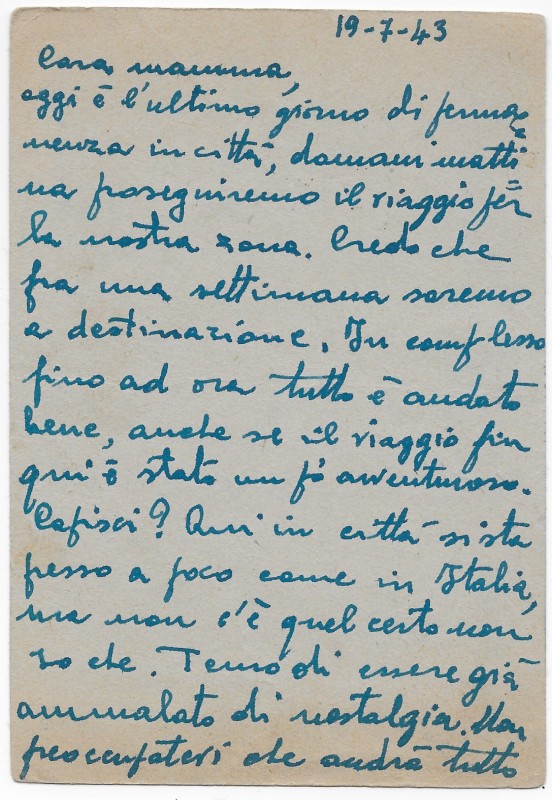 19-7-43
Cara mamma,
oggi è l'ultimo giorno di perma=
nenza in città, domani matti=
na proseguiremo il viaggio per
la nostra zona. Credo che
fra una settimana saremo
a destinazione. In complesso
fino ad ora tutto è andato
bene, anche se il viaggio fin
qui è stato un pò avventuroso.
Capisci? Qui in città si sta
presso a poco come in Italia,
ma non c'è quel certo non
so che. Temo di essere già
ammalato di nostalgia. Non
preoccupatevi che andrà tutto